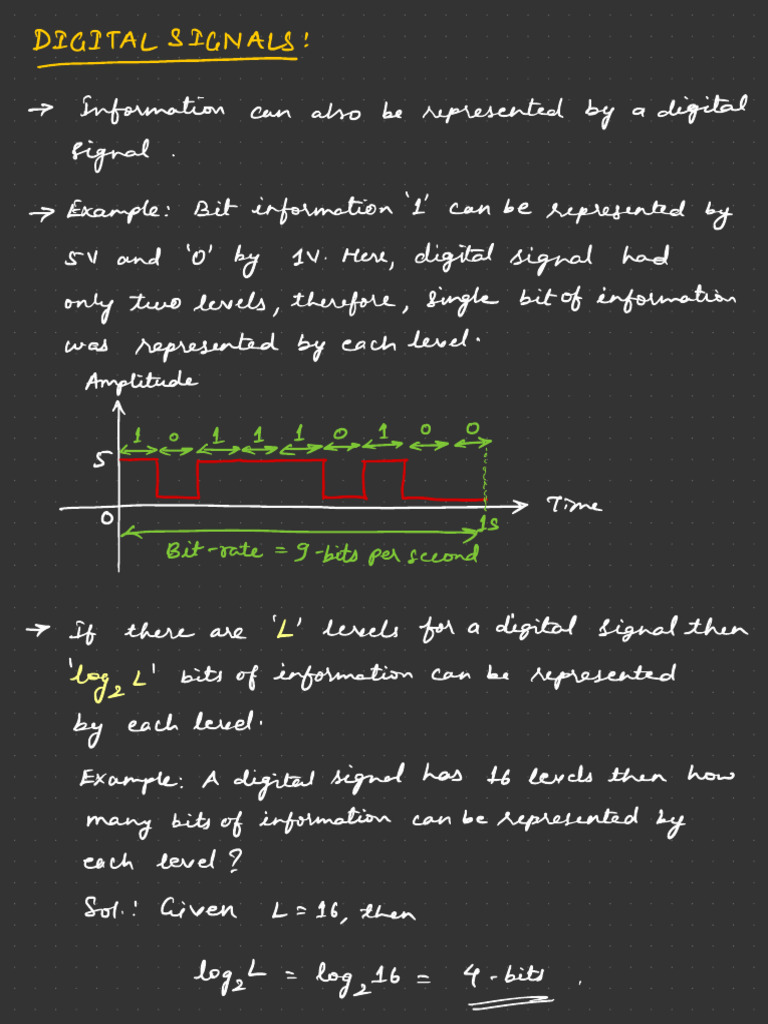 DIGITAL SIGNALS:
→ Information can also be represented by a digital
signal.
→ Example: Bit information '1' can be represented by
5V and '0' by 1V. Here, digital signal had
only two levels, therefore, single bit of information
was represented by each level.
Amplitude
1 0 1 1 1 0 1 0 0
5
Time
0
1s
Bit-rate = 9-bits per second
→ If there are 'L' levels for a digital signal then
'log₂ L' bits of information can be represented
by each level.
Example: A digital signal has 16 levels then how
many bits of information can be represented by
each level?
Sol.: Given L = 16, then
log₂L = log₂16 = 4-bits.